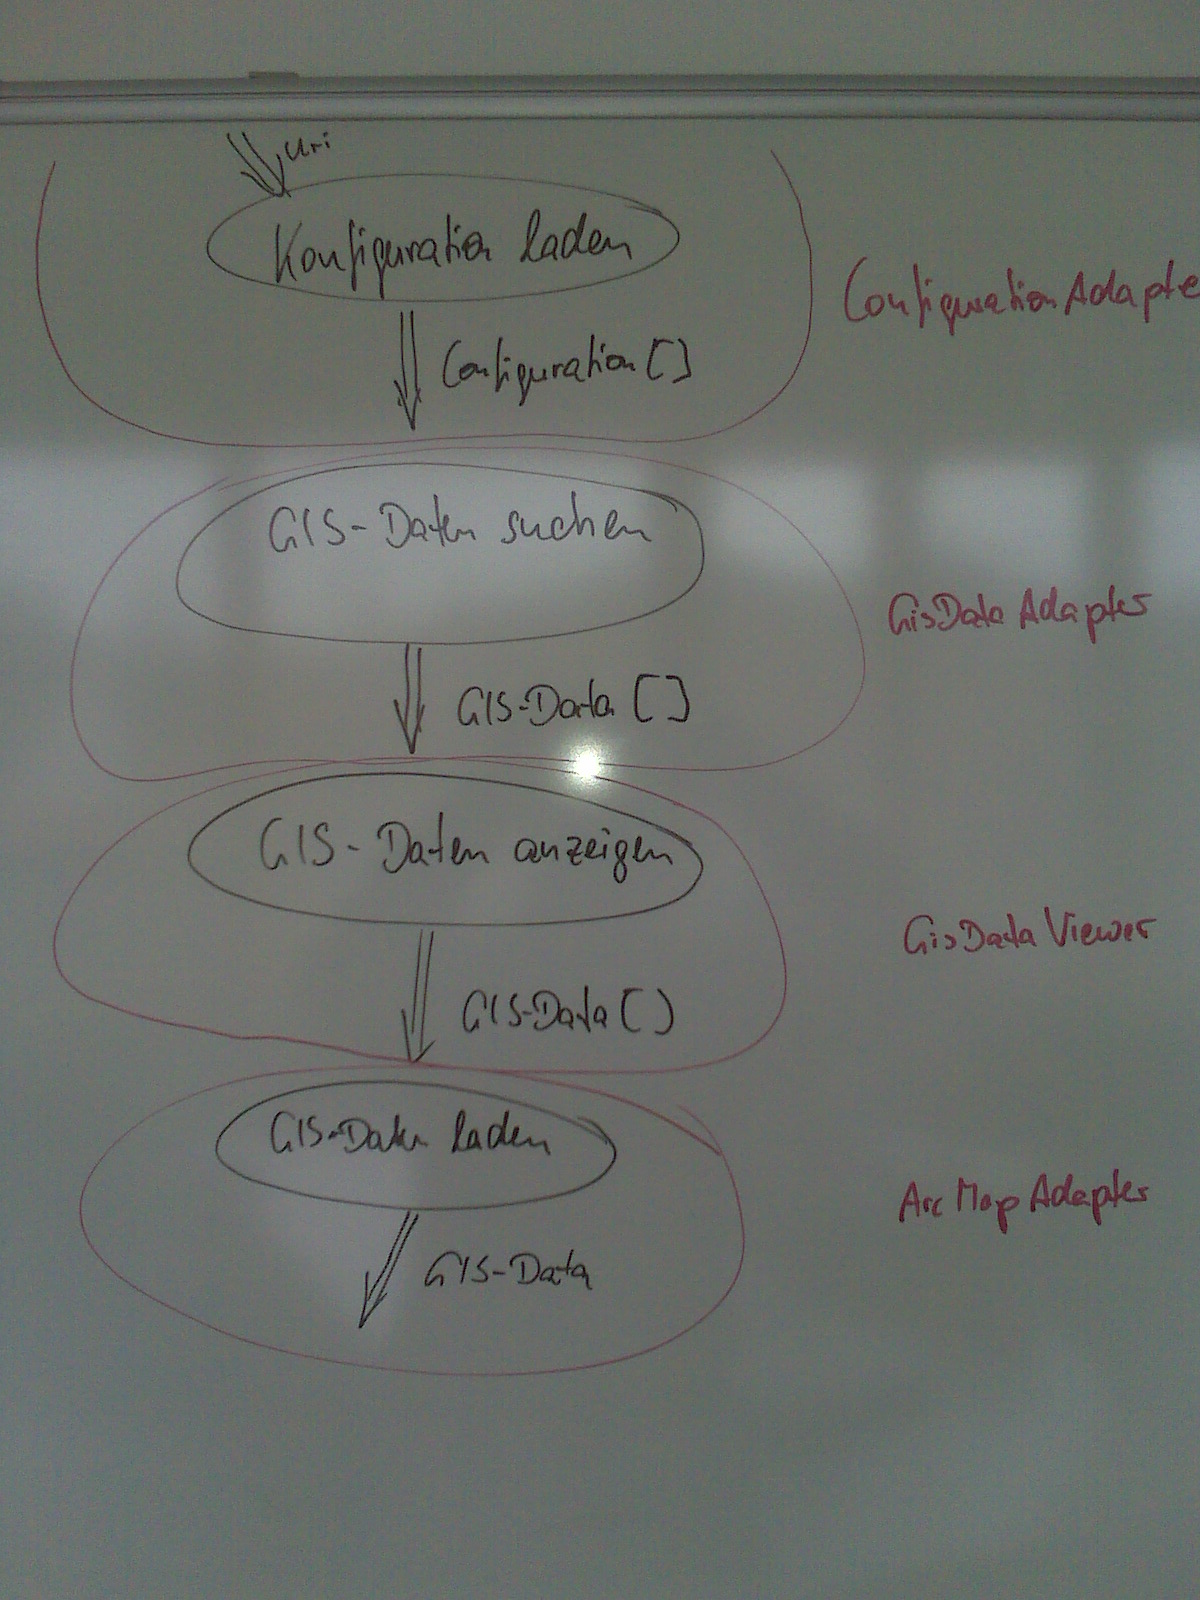 Uri
Konfiguration laden
ConfigurationAdapte
Configuration []
GIS-Daten suchen
GisData Adapter
GIS-Data []
GIS-Daten anzeigen
GisData Viewer
GIS-Data []
GIS-Daten laden
Arc Map Adapter
GIS-Data